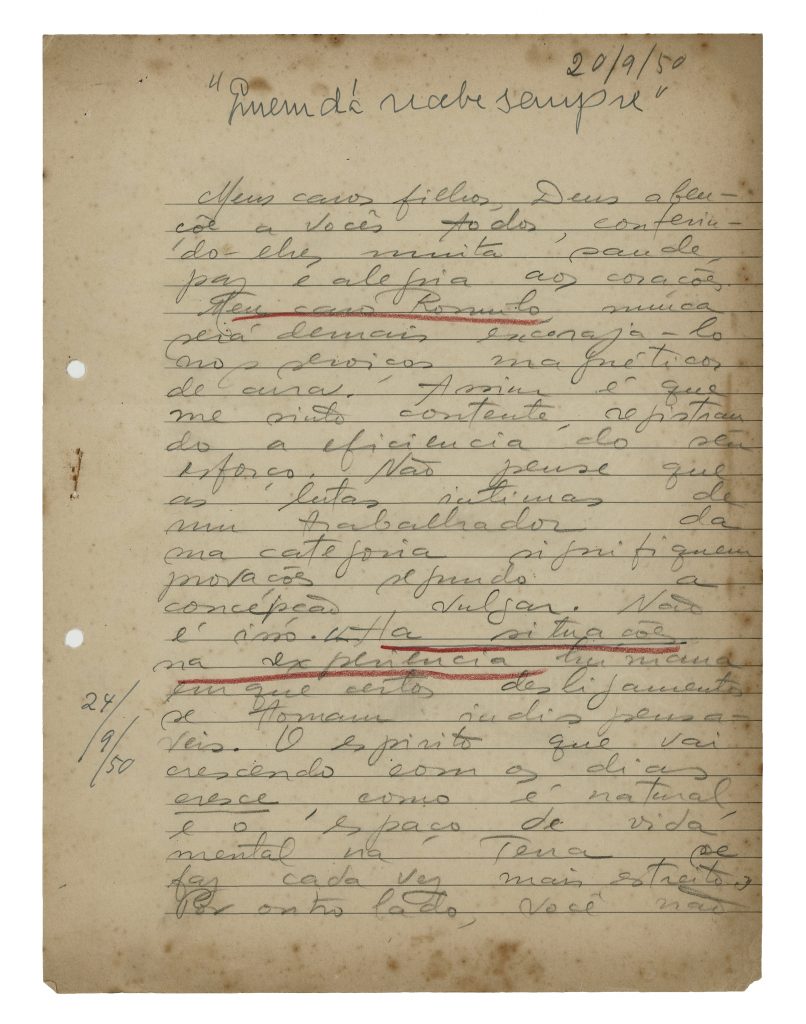 20/9/50
"Quem dá recebe sempre"
Meus caros filhos, Deus aben-
çõe a vocês todos, conferin-
do-lhes muita saúde,
paz e alegria aos corações.
Meu caro Romulo, nunca
será demais encorajá-lo
nos serviços magnéticos
de cura. Assim é que
me sinto contente, registran
do a eficiencia do seu
esforço. Não pense que
as lutas intimas de
um trabalhador da
sua categoria signifiquem
provações segundo a
concepção vulgar. Não
é isso. Ha situações
na experiencia humana
em que certos desligamentos
se tornam indispensa-
veis. O espirito que vai
crescendo com os dias
cresce, como é natural,
e o espaço de vida
mental na Terra se
faz cada vez mais estreito.
Por outro lado, você não
24/9/50